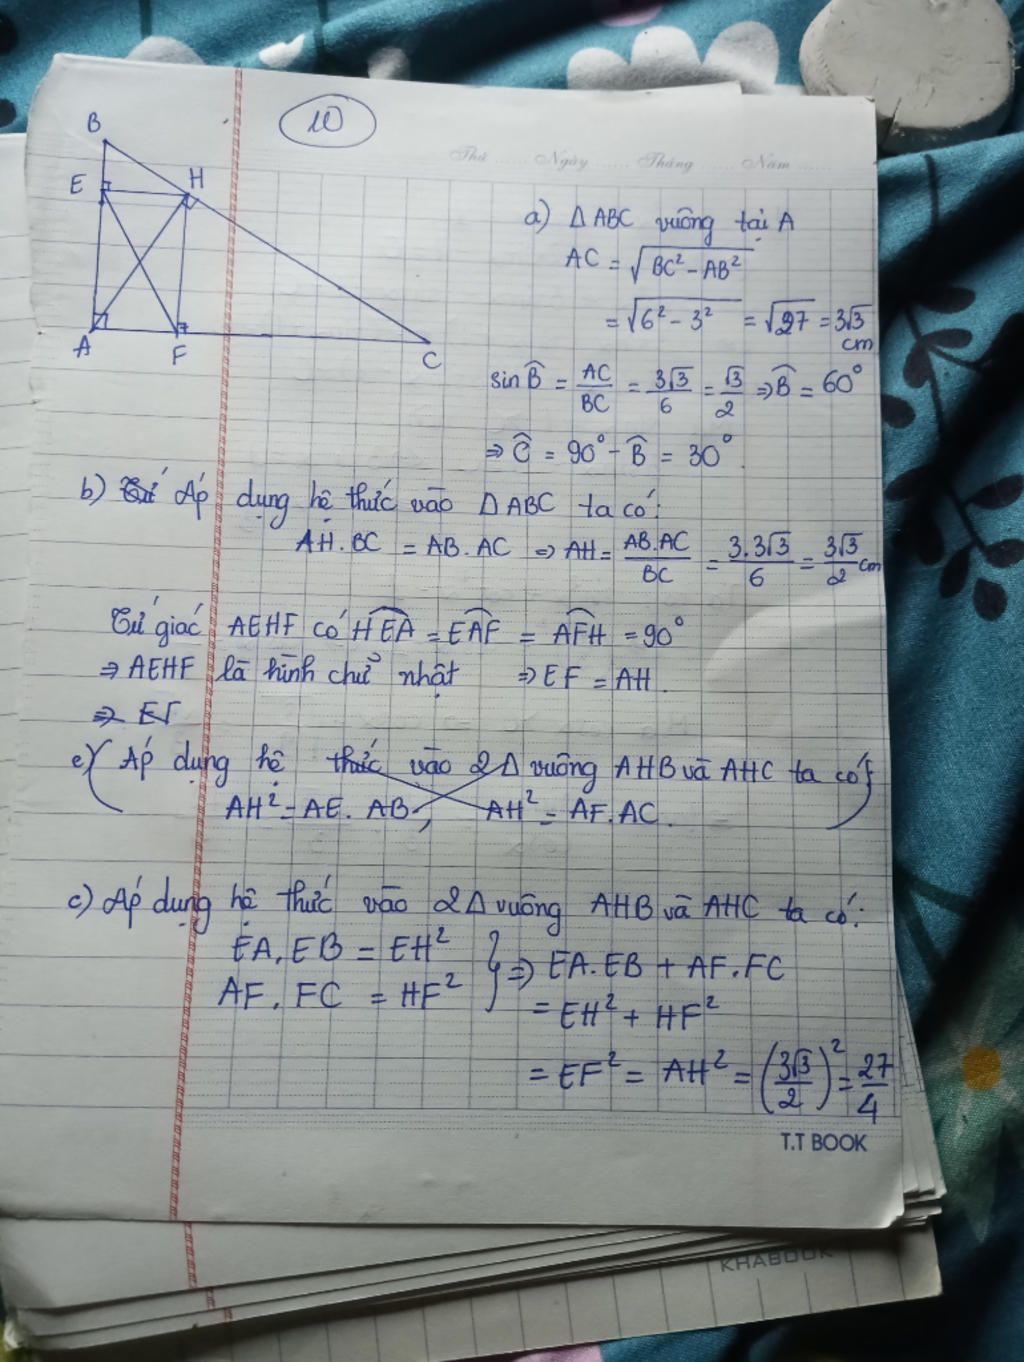 10
Thứ ...... Ngày ...... Tháng ...... Năm ......
B
E
H
A
F
C
a) Δ ABC vuông tại A
AC = √(BC² - AB²)
= √(6² - 3²) = √27 = 3√3 cm
sin B̂ = AC/BC = 3√3/6 = √3/2 ⇒ B̂ = 60°
⇒ Ĉ = 90° - B̂ = 30°
b) Áp dụng hệ thức vào Δ ABC ta có:
AH.BC = AB.AC ⇒ AH = AB.AC/BC = 3.3√3/6 = 3√3/2 cm
Tứ giác AEHF có HEA = EAF = AFH = 90°
⇒ AEHF là hình chữ nhật ⇒ EF = AH.
⇒ EF
c) Áp dụng hệ thức vào 2Δ vuông AHB và AHC ta có:
AH² = AE. AB, AH² = AF.AC.
c) Áp dụng hệ thức vào 2Δ vuông AHB và AHC ta có:
EA.EB = EH²
AF.FC = HF²
} ⇒ EA.EB + AF.FC
= EH² + HF²
= EF² = AH² = (3√3/2)² = 27/4
T.T BOOK
KHABOOK